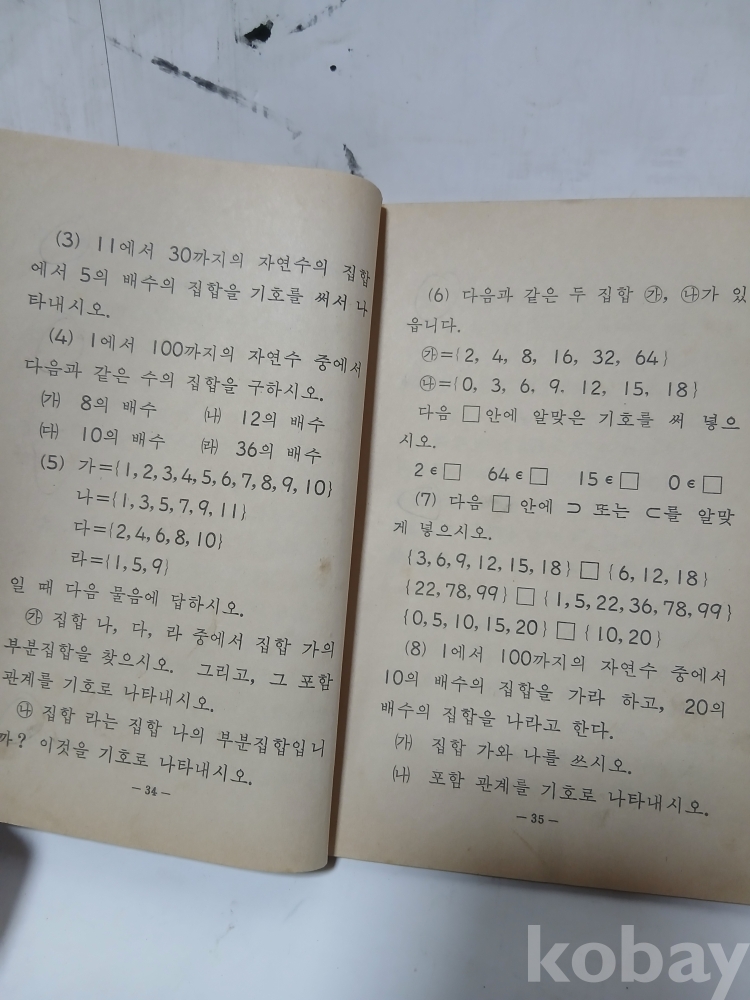 (3) 11에서 30까지의 자연수의 집합
에서 5의 배수의 집합을 기호를 써서 나
타내시오.
(4) 1에서 100까지의 자연수 중에서
다음과 같은 수의 집합을 구하시오.
㈎ 8의 배수 ㈏ 12의 배수
㈐ 10의 배수 ㈑ 36의 배수
(5) 가={1,2,3,4,5,6,7,8,9,10}
나={1,3,5,7,9,11}
다={2,4,6,8,10}
라={1,5,9}
일 때 다음 물음에 답하시오.
㉮ 집합 나, 다, 라 중에서 집합 가의
부분집합을 찾으시오. 그리고, 그 포함
관계를 기호로 나타내시오.
㉯ 집합 라는 집합 나의 부분집합입니
까? 이것을 기호로 나타내시오.
— 34 —
(6) 다음과 같은 두 집합 ㉮, ㉯가 있
읍니다.
㉮={2, 4, 8, 16, 32, 64}
㉯={0, 3, 6, 9. 12, 15, 18}
다음 □안에 알맞은 기호를 써 넣으
시오.
2∈□ 64∈□ 15∈□ 0∈□
(7) 다음 □ 안에 ⊃ 또는 ⊂를 알맞
게 넣으시오.
{3,6,9,12,15,18} □ {6,12,18}
{22,78,99} □ {1,5,22,36,78,99}
{0,5,10,15,20} □ {10,20}
(8) 1에서 100까지의 자연수 중에서
10의 배수의 집합을 가라 하고, 20의
배수의 집합을 나라고 한다.
㈎ 집합 가와 나를 쓰시오.
㈏ 포함 관계를 기호로 나타내시오.
— 35 —
kobay